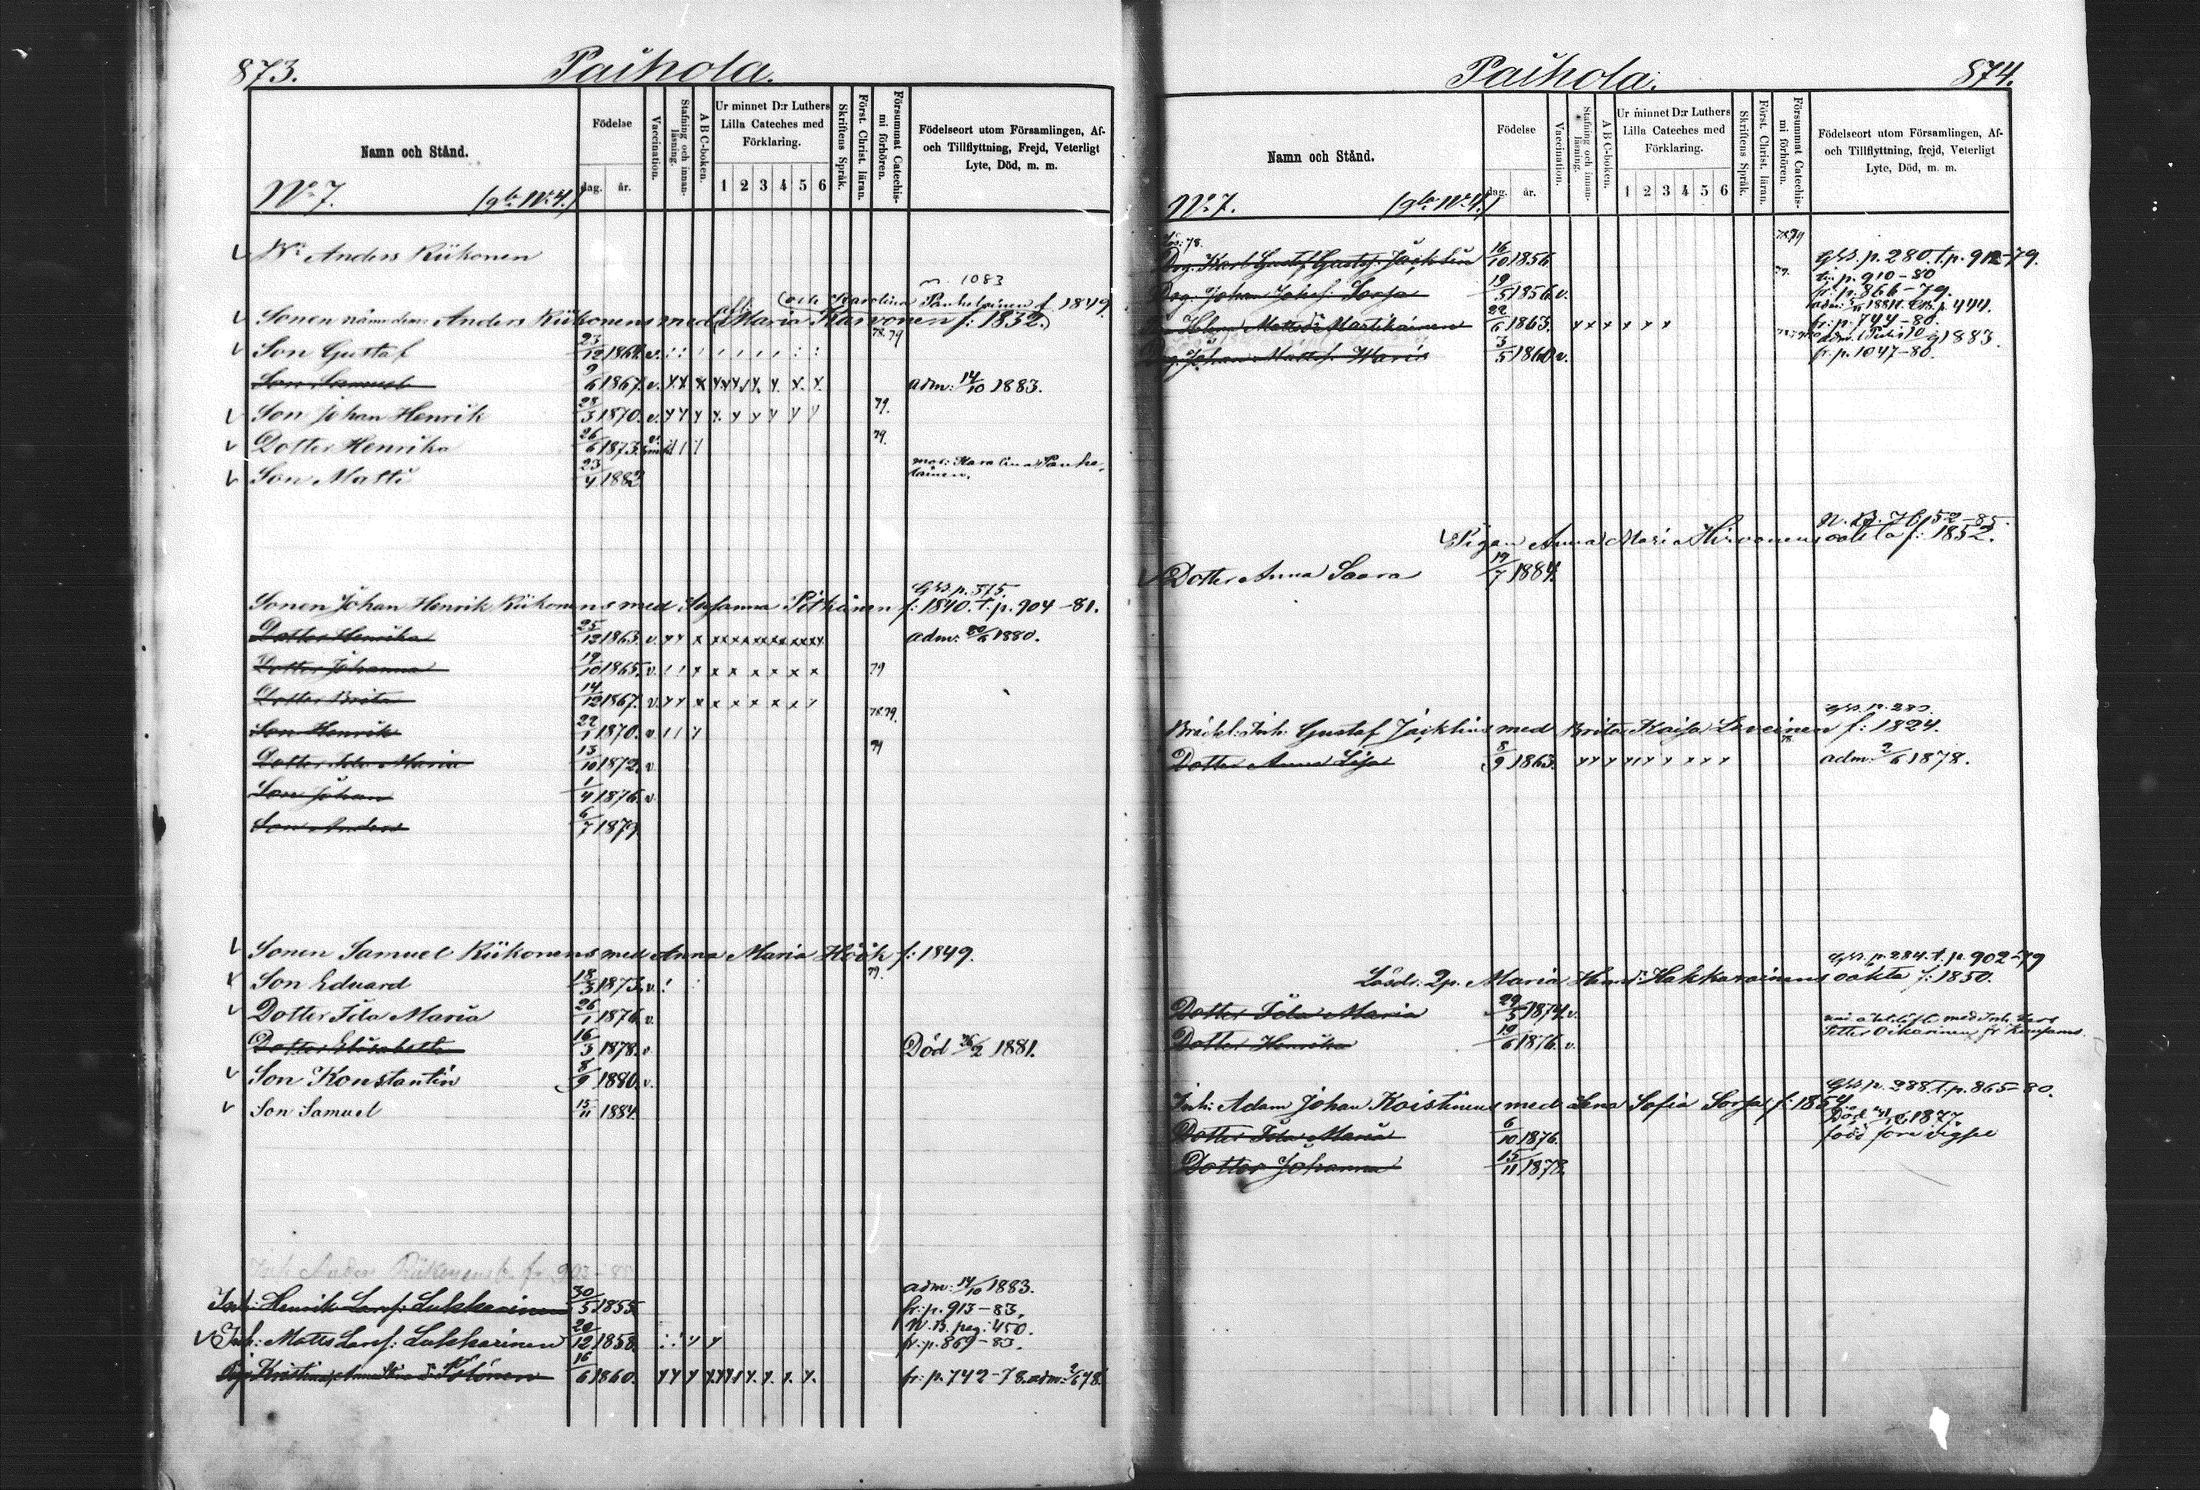 873. Paihola.
Namn och Stånd.
Födelse
dag. år.
Vaccination.
Stafning och innanläsning.
A B C-boken.
Ur minnet D:r Luthers Lilla Cateches med Förklaring.
1 2 3 4 5 6
Skriftens Språk.
Först. Christ. läran.
Försummat Catechismi förhören.
Födelseort utom Församlingen, Af- och Tillflyttning, Frejd, Veterligt Lyte, Död, m. m.
No 7. (gla No 4.)
Anders Riikonen
1083
Karolina f. 1849.
Sonen Anders Riikonens med Maria Karvonen f: 1832.)
78.79
Son Gustaf 23/12 1864. v.
Son Samuel 9/6 1867. v. adm: 14/10 1883.
Son Johan Henrik 28/3 1870. v. 79.
Dotter Henrika 26/6 1873. 79.
Son Matti 23/4 1882 Karolina
Gbb p. 315.
Sonen Johan Henrik Riikonens med Susanna Pitkänen f: 1840. t. p. 904-81.
Dotter Henrika 25/12 1863. v. adm: 1880.
Dotter Johanna 19/10 1865. v. 79
Dotter Brita 14/12 1867. v.
Son Henrik 22/1 1870. v. 78.79.
Dotter Ida Maria 13/10 1872. v. 79
Son Johan 1/4 1876. v.
Son Anders 6/7 1879
Sonen Samuel Riikonens med Anna Maria Höök f: 1849.
Son Eduard 18/3 1873. v. 79.
Dotter Ida Maria 26/1 1876. v.
Dotter Elisabeth 16/3 1878. v. Död 26/2 1881.
Son Konstantin 8/9 1880. v.
Son Samuel 15/11 1884.
adm: 14/10 1883.
Inh: Henrik Larsf: Lukkarinen 30/5 1855. fr: p. 913-83.
N. B. pag: 450.
Inh: Matts Larsf: Lukkarinen 20/12 1858. fr: p. 869-83.
16/6 1860. fr: p. 742-78. adm: 2/6 78.
Paihola. 874.
Namn och Stånd.
Födelse
dag. år.
Vaccination.
Stafning och innanläsning.
A B C-boken.
Ur minnet D:r Luthers Lilla Cateches med Förklaring.
1 2 3 4 5 6
Skriftens Språk.
Först. Christ. läran.
Försummat Catechismi förhören.
Födelseort utom Församlingen, Af- och Tillflyttning, frejd, Veterligt Lyte, Död, m. m.
No 7. (gla No 4.)
Karl Gustaf Gustafs: Jäcklin 16/10 1856 78.79 Gbb. p. 280. t. p. 912-79.
p. 910-80
Johan Johsf. Sorsa 19/5 1856. v. 79. fr: p. 866-79.
p. 444.
Martikainen 22/6 1863. fr: p. 744-80.
1883.
Johan Mattsf. 3/5 1860. v. fr. p. 1047-80.
N. B. 76, 52-85.
Pigan Anna Maria Hirvonens oäkta f: 1852.
Dotter Anna Saara 19/7 1884.
Gbb. p. 280.
Inh: Gustaf Jäcklins med Brita Kaisa f: 1824.
78
Dotter Anna Lisa 8/9 1863. adm: 2/6 1878.
Gbb. p. 284. t. p. 902-79
Lösdr. Qp. Maria Hakkarainens oäkta f: 1850.
Dotter Ida Maria 29/5 1874. v.
Dotter Henrika 19/6 1876. v. Petter Oikarinen
Gbb p. 288. t. p. 865-80.
Inh: Adam Johan Koistinens med Lena Sofia Sorsa f: 1854
Dotter Ida Maria 6/10 1876. Död 1877
född före vigsel
Dotter Johanna 15/11 1878.